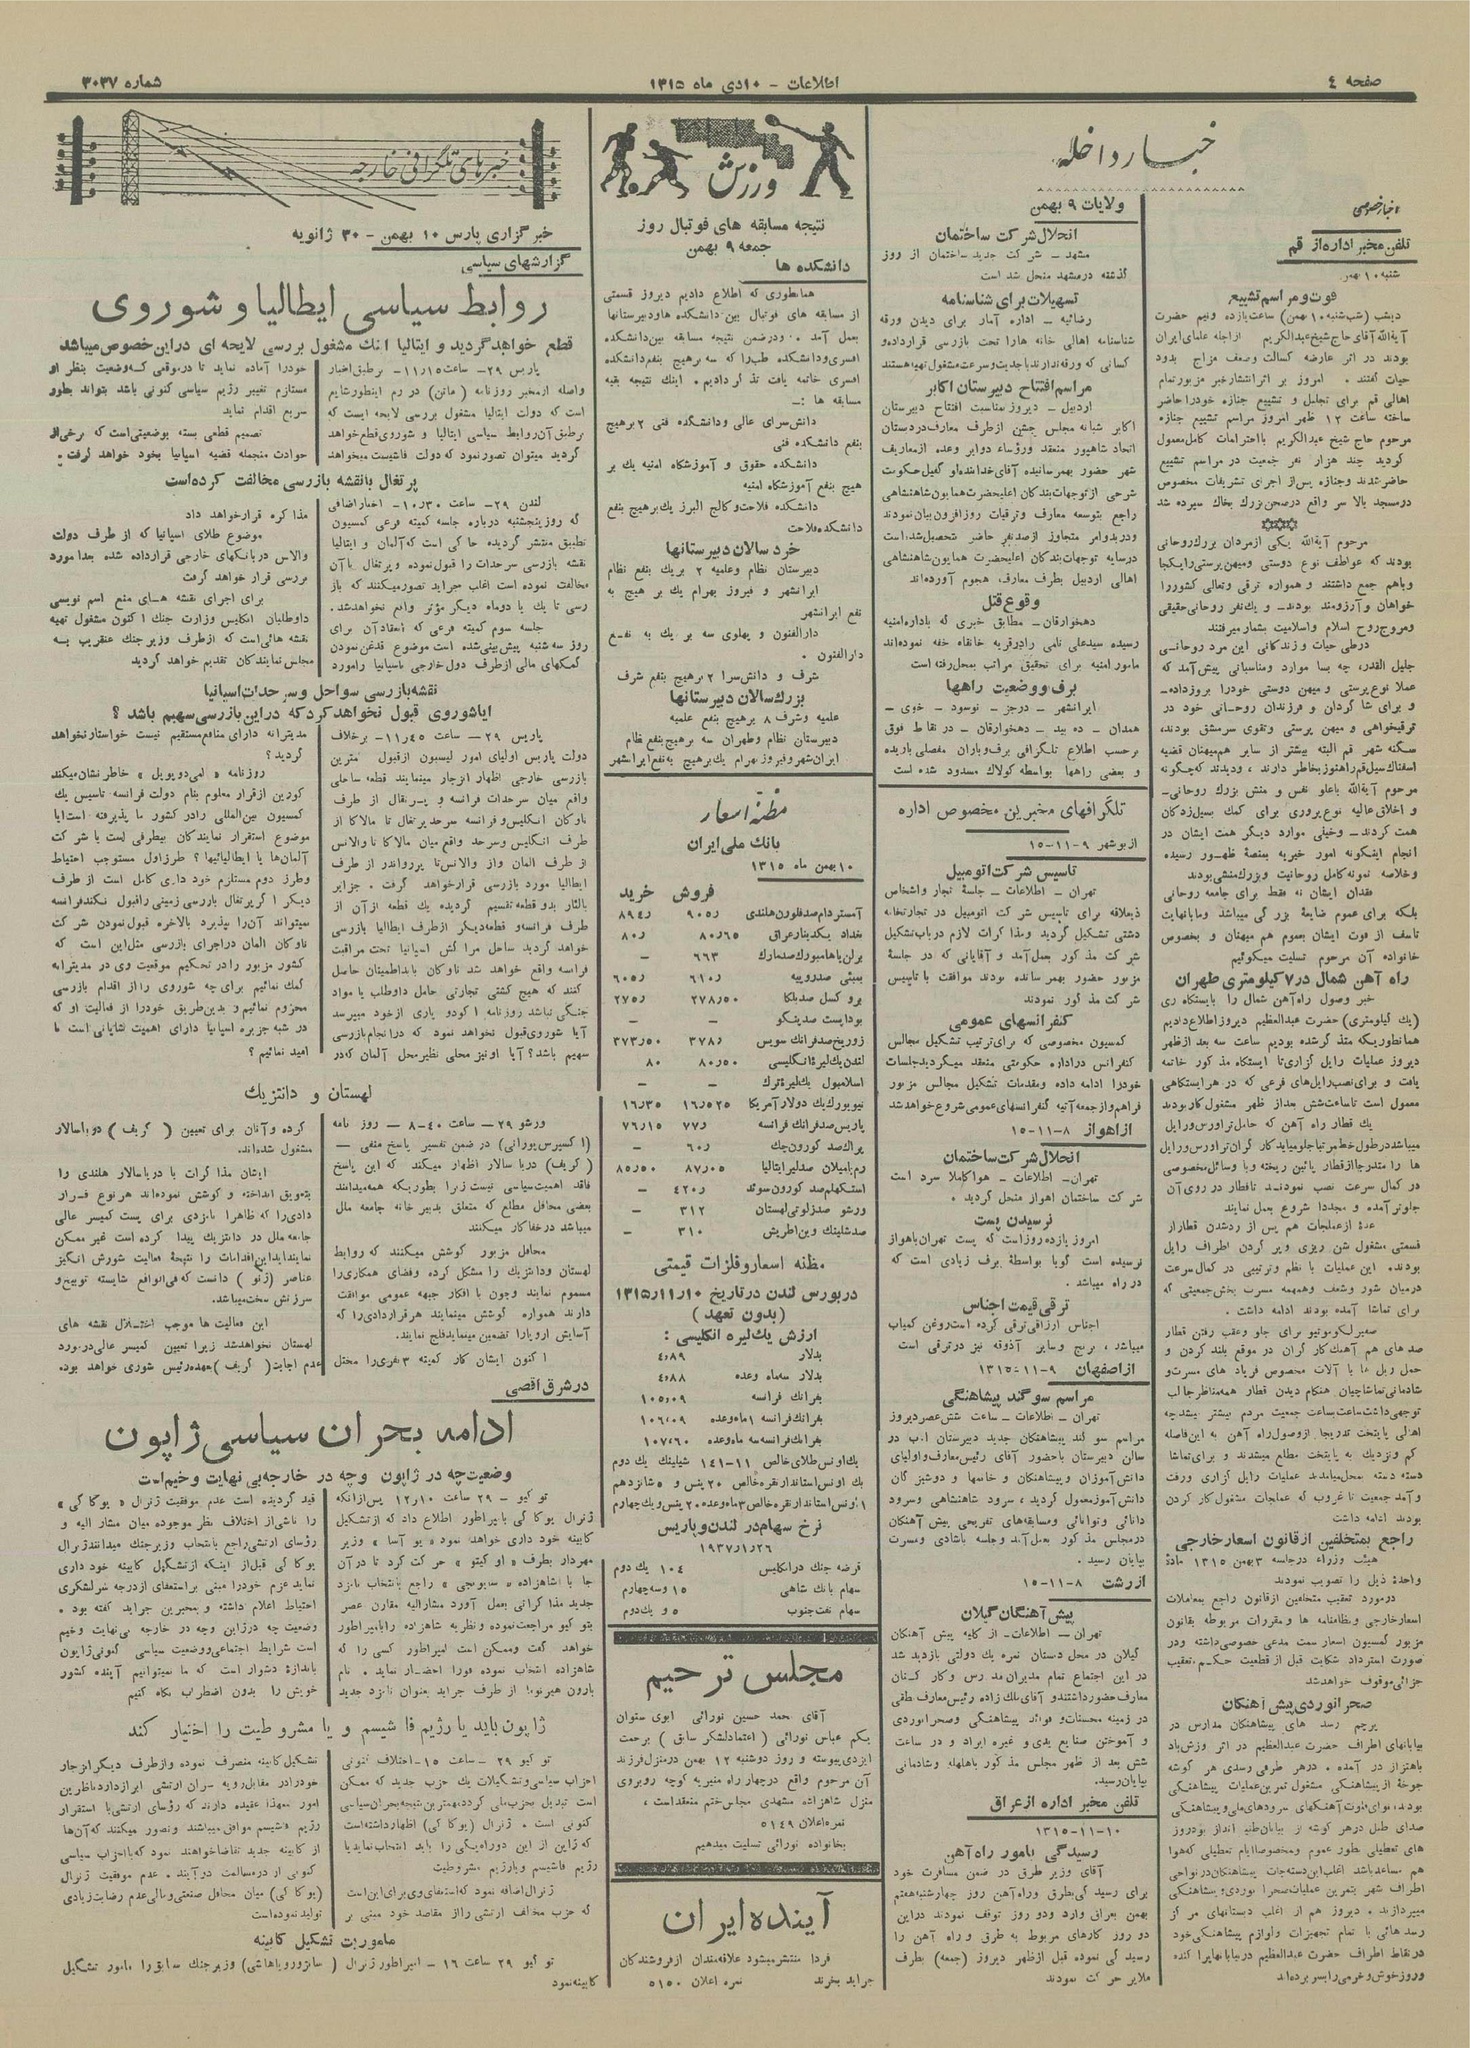 صفحه ٤
اطلاعات - ۱۰دی ماه ۱۳۱۵
شماره ۳۰۳۷
اخبار داخله
اخبار خصوصی
تلفن مخبر اداره از قم
شنبه ۱۰ بهمن
فوت و مراسم تشییع
دیشب (شب شنبه ۱۰ بهمن) ساعت یازده و نیم حضرت
آیة‌الله آقای حاج شیخ عبدالکریم از اجله علمای ایران
بودند در اثر عارضه کسالت وضعف مزاج بدود
حیات گفتند . امروز بر اثر انتشار خبر مزبور تمام
اهالی قم برای تجلیل و تشییع جنازه خودرا حاضر
ساخته ساعت ۱۲ ظهر امروز مراسم تشییع جنازه
مرحوم حاج شیخ عبدالکریم بااحترامات کامل معمول
گردید چند هزار نفر جمعیت در مراسم تشییع
حاضر شدند وجنازه پس از اجرای تشریفات مخصوص
درمسجد بالا سر واقع درصحن بزرگ بخاك سپرده شد
مرحوم آیة‌الله یکی ازمردان بزرك روحانی
بودند که عواطف نوع دوستی ومیهن پرستی رایکجا
وباهم جمع داشتند و همواره ترقی وتعالی کشوررا
خواهان و آرزومند بودند- و یك نفر روحانی حقیقی
ومروج روح اسلام واسلامیت بشمار میرفتند
درطی حیات وزندگانی این مرد روحانی
جلیل القدر، چه بسا موارد ومناسباتی پیش آمد که
عملا نوع پرستی و میهن دوستی خودرا بروز داده-
و برای شاگردان و فرزندان روحانی خود در
ترقیخواهی و میهن پرستی وتقوی سرمشق بودند،
سکنه شهر قم البته بیشتر از سایر هم میهنان قضیه
اسفناك سیل قم راهنوز بخاطر دارند ، ودیدند که چگونه
مرحوم آیة‌الله باعلو نفس و منش بزرك روحانی-
و اخلاق عالیه نوع پروری برای کمك بسیل زدگان
همت کردند- وخیلی موارد دیگر همت ایشان در
انجام اینگونه امور خیریه بمنصة ظهور رسیده
وخلاصه نمونه کامل روحانیت و بزرك منشی بودند
فقدان ایشان نه فقط برای جامعه روحانی
بلکه برای عموم ضایعة بزرگی میباشد ومابانهایت
تاسف از فوت ایشان بعموم هم میهنان و بخصوص
خانواده آن مرحوم تسلیت میگوئیم
راه آهن شمال در۷ کیلومتری طهران
خبر وصول راه آهن شمال را بایستگاه ری
(یك کیلومتری) حضرت عبدالعظیم دیروز اطلاع دادیم
همانطوریکه متذکر شده بودیم ساعت سه بعد ازظهر
دیروز عملیات رایل گزاری تا ایستگاه مذکور خاتمه
یافت و برای نصب رایل های فرعی که در هر ایستگاهی
معمول است تاساعت شش بعداز ظهر مشغول کار بودند
یك قطار راه آهن که حامل تراورس ورایل
میباشد درطول خط مرتبا جلو میاید کارگران تراورس ورایل
ها را متدرجا از قطار پائین ریخته وبا وسائل مخصوصی
در کمال سرعت نصب نمودند تاقطار در روی آن
جلوتر آمده و مجددا شروع بعمل نمایند
عدة ازعملجات هم پس از رد شدن قطار از
قسمتی مشغول شن ریزی و پر کردن اطراف رایل
بودند. این عملیات با نظم وترتیبی در کمال سرعت
درمیان شور وشعف وهمهمه مسرت بخش جمعیتی که
برای تماشا آمده بودند ادامه داشت .
صفیر لکوموتیو برای جلو وعقب رفتن قطار
صدهای هم آهنك کارگران در موقع بلند کردن و
حمل ریل ها با آلات مخصوص فریاد های مسرت و
شادمانی تماشاچیان هنگام دیدن قطار همه مناظر جالب
توجهی داشت ساعت بساعت جمعیت مردم بیشتر میشد چه
اهالی پایتخت تدریجا ازوصول راه آهن به این فاصله
کم ونزدیك به پایتخت مطلع میشدند و برای تماشا
دسته دسته بمحل میامدند عملیات رایل گزاری ورفت
و آمد جمعیت تا غروب که عملجات مشغول کار کردن
بودند ادامه داشت
راجع بمتخلفین ازقانون اسعار خارجی
هیئت وزراء درجلسه ۳ بهمن ۱۳۱۵ مادة
واحدة ذیل را تصویب نمودند
درمورد تعقیب متخلفین ازقانون راجع بمعاملات
اسعارخارجی ونظامنامه ها و مقررات مربوطه بقانون
مزبور کمسیون اسعار سمت مدعی خصوصی داشته ودر
صورت استرداد شکایت قبل از قطعیت حکم، تعقیب
جزائی موقوف خواهدشد
صحرانوردی پیش آهنگان
پرچم رسد های پیشاهنگان مدارس در
بیابانهای اطراف حضرت عبدالعظیم در اثر وزش باد
باهتزاز در آمده . درهر طرفی رسدی هر گوشه
جوخة ازپیشاهنگی مشغول تمرین عملیات پیشاهنگی
صدای طبل درهر گوشه از بیابان طنین انداز بود روز
های تعطیلی بطور عموم ومخصوصا ایام تعطیلی که هوا
هم مساعد باشد اغلب این دسته جات پیشاهنگان درنواحی
اطراف شهر بتمرین عملیات صحرا نوردی و پیشاهنگی
میپردازند . دیروز هم از اغلب دبستانهای مرکز
رسدهائی با تمام تجهیزات ولوازم پیشاهنگی خود
درنقاط اطراف حضرت عبدالعظیم دربیابانها پراکنده
وروز خوش وخرمی رابسر برده اند
ولایات ۹ بهمن
انحلال شرکت ساختمان
مشهد - شرکت جدید ساختمان از روز
گذشته درمشهد منحل شد است
تسهیلات برای شناسنامه
رضائیه - اداره آمار برای دیدن ورقه
شناسنامه اهالی خانه هارا تحت بازرسی قرارداده و
کسانی که ورقه ندارند باجدیت وسرعت مشغول تهیه هستند
مراسم افتتاح دبیرستان اکابر
اردبیل - دیروز بمناسبت افتتاح دبیرستان
اکابر شبانه مجلس جشن ازطرف معارف دردستان
اتحاد شاهپور منعقد ورؤساء دوایر وعده ازمعاریف
شهر حضور بهمرسانیده آقای خدابنده لو کفیل حکومت
شرحی ازتوجهات بندگان اعلیحضرت همایون شاهنشاهی
راجع بتوسعه معارف وترقیات روزافزون بیان نمودند
ودربدوامر متجاوز ازصدنفر حاضر بتحصیل شد، است
درسایه توجهات بندگان اعلیحضرت همایون شاهنشاهی
اهالی اردبیل بطرف معارف، هجوم آورده اند
وقوع قتل
دهخوارقان - مطابق خبری که باداره امنیه
رسیده سیدعلی نامی رادر قریه خانقاه خفه نموده اند
مامور امنیه برای تحقیق مراتب بمحل رفته است
برف ووضعیت راهها
ایرانشهر - درجز - نوسود - خوی -
همدان - ده بید - دهخوارقان - در نقاط فوق
برحسب اطلاع تلگرافی برف وباران مفصلی باریده
و بعضی راهها بواسطه کولاك مسدود شده است
تلگرافهای مخبرین مخصوص اداره
ازبوشهر ۹-۱۱-۱۵
تاسیس شرکت اتومبیل
تهران - اطلاعات - جلسة تجار واشخاص
ذیعلاقه برای تاسیس شرکت اتومبیل در تجارتخانه
دشتی تشکیل گردید ومذاکرات لازم درباب تشکیل
شرکت مذکور بعمل آمد و آقایانی که در جلسة
مزبور حضور بهمرسانده بودند موافقت با تاسیس
شرکت مذکور نمودند
کنفرانسهای عمومی
کمسیون مخصوصی که برای ترتیب تشکیل مجالس
کنفرانس دراداره حکومتی منعقد میگردید جلسات
خودرا ادامه داده ومقدمات تشکیل مجالس مزبور
فراهم وازجمعه آتیه کنفرانسهای عمومی شروع خواهد شد
ازاهواز ۸-۱۱-۱۵
انحلال شرکت ساختمان
تهران- اطلاعات - هواکاملا سرد است
شرکت ساختمان اهواز منحل گردید .
نرسیدن پست
امروز یازده روز است که پست تهران باهواز
نرسیده است گویا بواسطة برف زیادی است که
در راه میباشد .
ترقی قیمت اجناس
اجناس ارزاقی ترقی کرده است روغن کمیاب
میباشد ، برنج وسایر آذوقه نیز درترقی است
ازاصفهان ۹-۱۱-۱۳۱۵
مراسم سوگند پیشاهنگی
تهران - اطلاعات - ساعت شش عصر دیروز
مراسم سوگند پیشاهنگان جدید دبیرستان ا.ب در
سالن دبیرستان باحضور آقای رئیس معارف واولیای
دانش آموزان وپیشاهنگان و خانمها و دوشیزگان
دانش آموز معمول گردید ، سرود شاهنشاهی وسرود
دانائی وتوانائی ومسابقه های تفریحی پیش آهنگان
درمجلس مذکور بعمل آمد وجلسه باشادی ومسرت
بپایان رسید .
ازرشت ۸-۱۱-۱۵
پیش آهنگان گیلان
تهران - اطلاعات- از کلیه پیش آهنگان
گیلان در محل دبستان نمره یك دولتی بازدید شد
در این اجتماع تمام مدیران مدارس و کارکنان
معارف حضورداشتند و آقای ملك زاده رئیس معارف طی
در زمینه محسنات و فوائد پیشاهنگی وصحرانوردی
و آموختن صنایع یدی و غیره ایراد و در ساعت
شش بعد از ظهر مجلس مذکور باهلهله وشادمانی
بپایان رسید.
تلفن مخبر اداره ازعراق
۱۰-۱۱-۱۳۱۵
رسیدگی بامور راه آهن
آقای وزیر طرق در ضمن مسافرت خود
برای رسیدگی بطرق و راه آهن روز چهارشنبه هفتم
بهمن بعراق وارد ودو روز توقف نمودند دراین
دو روز کارهای مربوط به طرق و راه آهن را
رسیدگی نموده قبل ازظهر دیروز (جمعه) بطرف
ملایر حرکت نمودند
ورزش
نتیجه مسابقه های فوتبال روز
جمعه ۹ بهمن
دانشکده ها
همانطوری که اطلاع دادیم دیروز قسمتی
از مسابقه های فوتبال بین دانشکده هاودبیرستانها
بعمل آمد . ودرضمن نتیجه مسابقه بین دانشکده
افسری ودانشکده طب را که سه برهیچ بنفع دانشکده
افسری خاتمه یافت تذکر دادیم . اینك نتیجه بقیه
مسابقه ها :-
دانش سرای عالی ودانشکده فنی ۲ برهیچ
بنفع دانشکده فنی
دانشکده حقوق و آموزشگاه امنیه یك بر
هیچ بنفع آموزشگاه امنیه
دانشکده فلاحت وکالج البرز یك برهیچ بنفع
دانشکده فلاحت
خرد سالان دبیرستانها
دبیرستان نظام وعلمیه ۲ بریك بنفع نظام
ایرانشهر و فیروز بهرام یك بر هیچ به
نفع ایرانشهر
دارالفنون و پهلوی سه بر یك به نفع
دارالفنون .
شرف و دانش سرا ۲ برهیچ بنفع شرف
بزرك سالان دبیرستانها
علمیه وشرف ۸ برهیچ بنفع علمیه
دبیرستان نظام وطهران سه برهیچ بنفع نظام
ایران شهر وفیروز بهرام یك برهیچ به نفع ایرانشهر
مظنهٔ اسعار
بانك ملی ایران
۱۰ بهمن ماه ۱۳۱۵
فروش خرید
آمستردام صدفلورن هلندی ۹۰۵ر ۸۹۴ر
بغداد یکدینار عراق ۸۰٫۶۵ ۸۰ر
برلن یاهامبورك صدمارك ۶۶۳ —
بمبئی صدروپیه ۶۱۰ر ۶۰۵ر
بروکسل صدبلگا ۲۷۸٫۵۰ ۲۷۵ر
بوداپست صدپنگو — —
زوریخ صدفرانك سویس ۳۷۸ر ۳۷۳٫۵۰
لندن یك لیره انگلیسی ۸۰٫۵۰ ۸۰
اسلامبول یك لیره ترك — —
نیویورك یك دولار آمریکا ۱۶٫۵۲۵ ۱۶٫۳۵
پاریس صدفرانك فرانسه ۷۷ر ۷۶٫۱۵
پراك صد کورون چك ۶۰ر —
رم یامیلان صدلیر ایتالیا ۸۷٫۰۵ ۸۵٫۵۰
استکهلم صد کورون سوئد ۴۲۰ر —
ورشو صدزلوتی لهستان ۳۱۲ —
صدشلینك وین اطریش ۳۱۰ —
مظنه اسعار و فلزات قیمتی
دربورس لندن درتاریخ ۱۰ر۱۱ر۱۳۱۵
(بدون تعهد )
ارزش یك لیره انگلیسی :
بدلار ٤٫٨۹
بدلار سه ماه وعده ٤٫۸۸
بفرانك فرانسه ۱۰۵٫۰۹
بفرانك فرانسه ۱ ماه وعده ۱۰۶٫۰۹
بفرانك فرانسه سه ماه وعده ۱۰۷٫۶۰
یك اونس طلای خالص ۱۱-۱۴۱ شیلینك یك دوم
یك اونس استاندارد نقره خالص ۲۰ پنس و ۵ شانزدهم
۱ اونس استاندارد نقره خالص ۳ ماه وعده ۲۰ پنس ویك چهارم
نرخ سهام در لندن وپاریس
۱۹۳۷ر۱ر۲۶
قرضه جنك درانگلیس ۱۰٤ یك دوم
سهام بانك شاهی ۱۵ وسه چهارم
سهام نفت جنوب ۵ و یك دوم
مجلس ترحیم
آقای محمد حسین نورائی ابوی ستوان
یکم عباس نورائی ( اعتمادلشکر سابق ) برحمت
ایزدی پیوسته و روز دوشنبه ۱۲ بهمن درمنزل فرزند
آن مرحوم واقع درچهار راه منیریه کوچه روبروی
منزل شاهزاده مشهدی مجلس ختم منعقد است ،
نمره اعلان ۵۱٤۹
بخانواده نورائی تسلیت میدهیم
آینده ایران
فردا منتشر میشود علاقه مندان ازفروشندگان
جراید بخرند نمره اعلان ۵۱۵۰
خبرهای تلگرافی خارجه
خبرگزاری پارس ۱۰ بهمن - ۳۰ ژانویه
گزارشهای سیاسی
روابط سیاسی ایطالیا و شوروی
قطع خواهد گردید و ایتالیا انك مشغول بررسی لایحه ای دراین خصوص میباشد
پاریس ۲۹- ساعت ۱۱٫۱۵- برطبق اخبار
واصله از مخبر روزنامه ( ماتن) در رم اینطور شایع
است که دولت ایتالیا مشغول بررسی لایحه ایست که
برطبق آن روابط سیاسی ایتالیا و شوروی قطع خواهد
گردید میتوان تصور نمود که دولت فاشیست میخواهد
خودرا آماده نماید تا درموقعی که وضعیت بنظر او
مستلزم تغییر رژیم سیاسی کنونی باشد بتواند بطور
سریع اقدام نماید
تصمیم قطعی بسته بوضعیتی است که برخی از
حوادث منجمله قضیه اسپانیا بخود خواهد گرفت .
پرتغال بانقشه بازرسی مخالفت کرده است
لندن ۲۹- ساعت ۱۰٫۳۰- اخبار اضافی
که روز پنجشنبه درباره جلسه کمیته فرعی کمسیون
تطبیق منتشر گردیده حاکی است که آلمان و ایتالیا
نقشه بازرسی سرحدات را قبول نموده و پرتغال با آن
مخالفت نموده است اغلب جراید تصور میکنند که باز
رسی تا یك یا دوماه دیگر مؤثر واقع نخواهدشد.
جلسه سوم کمیته فرعی که انعقاد آن برای
روز سه شنبه پیش بینی شده است موضوع قدغن نمودن
کمکهای مالی ازطرف دول خارجی باسپانیا را مورد
مذاکره قرار خواهد داد
موضوع طلای اسپانیا که از طرف دولت
والانس دربانکهای خارجی قرارداده شده بعدا مورد
بررسی قرار خواهد گرفت
برای اجرای نقشه های منع اسم نویسی
داوطلبان انگلیس وزارت جنك اکنون مشغول تهیه
نقشه هائی است که ازطرف وزیر جنك عنقریب به
مجلس نمایندگان تقدیم خواهد گردید
نقشه بازرسی سواحل وسرحدات اسپانیا
ایاشوروی قبول نخواهد کرد که دراین بازرسی سهیم باشد ؟
پاریس ۲۹- ساعت ۱۱٫۴۵- برخلاف
دولت پاریس اولیای امور لیسبون ازقبول
بازرسی خارجی اظهار انزجار مینمایند قطعه ساحلی
واقع میان سرحدات فرانسه و پرتغال از طرف
ناوگان انگلیس و فرانسه سرحد پرتغال تا مالاگا از
طرف انگلیس و سرحد واقع میان مالاگا تا والانس
از طرف المان واز والانس تا پرواندر از طرف
ایطالیا مورد بازرسی قرارخواهد گرفت . جزایر
بالئار بدو قطعه تقسیم گردیده یك قطعه از آن از
طرف فرانسه و قطعه دیگر از طرف ایطالیا بازرسی
خواهد گردید ساحل مراکش اسپانیا تحت مراقبت
فرانسه واقع خواهد شد ناوگان بایداطمینان حاصل
کنند که هیچ کشتی تجارتی حامل داوطلب یا مواد
جنگی نباشد روزنامه اکودوپاری ازخود میپرسد
آیا شوروی قبول نخواهد نمود که درانجام بازرسی
سهیم باشد؟ آیا او نیز محلی نظیر محل آلمان که در
مدیترانه دارای منافع مستقیم نیست خواستار نخواهد
گردید ؟
روزنامه « لمی دوپوپل » خاطر نشان میکند
کوردن ازقرار معلوم بنام دولت فرانسه تاسیس یك
کمسیون بین المللی را در کشور ما پذیرفته است ایا
موضوع استقرار نمایندگان بیطرفی است یا شرکت
آلمان ها یا ایطالیائیها ؟ طرز اول مستوجب احتیاط
وطرز دوم مستلزم خود داری کامل است از طرف
دیگر اگر پرتغال بازرسی زمینی را قبول نکند فرانسه
میتواند آن را بپذیرد بالاخره قبول نمودن شرکت
ناوگان المان دراجرای بازرسی مثل این است که
کشور مزبور را در تحکیم موقعیت وی در مدیترانه
کمك نمائیم برای چه شوروی را از اقدام بازرسی
محروم نمائیم و بدین طریق خودرا از فعالیت او که
در شبه جزیره اسپانیا دارای اهمیت شایانی است نا
امید نمائیم ؟
لهستان و دانتزیك
ورشو ۲۹- ساعت ۴۰-۸ - روز نامه
(اکسپرس پورانی) در ضمن تفسیر پاسخ منفی -
( گریف) دریا سالار اظهار میکند که این پاسخ
فاقد اهمیت سیاسی نیست زیرا بطوریکه همه میدانند
بعضی محافل مطلع که متعلق بدبیر خانه جامعه ملل
میباشد درخفا کار میکنند
محافل مزبور کوشش میکنند که روابط
لهستان ودانتزیك را مشکل کرده وفضای همکاری را
مسموم نمایند وچون با افکار جبهه عمومی موافقت
دارند همواره کوشش مینمایند هر قراردادی را که
آسایش اروپارا تضمین مینماید فلج نمایند.
اکنون ایشان کار کمیته ۳ نفری را مختل
کرده و آنان برای تعیین ( گریف ) دریا سالار
مشغول شده اند.
ایشان مذاکرات با دریاسالار هلندی را
بتعویق انداخته و کوشش نموده اند هر نوع قرار
دادی را که ظاهرا نامزدی برای پست کمیسر عالی
جامعه ملل در دانتزیك پیدا کرده است غیر ممکن
نمایند باید این اقدامات را نتیجة فعالیت شورش انگیز
عناصر (ژنو ) دانست که فی الواقع شایسته توبیخ و
سرزنش سخت میباشد.
این فعالیت ها موجب اختلال نقشه های
لهستان نخواهد شد زیرا تعیین کمیسر عالی درصورت
عدم اجابت ( گریف) بعهده رئیس شوری خواهد بود.
درشرق اقصی
ادامه بحران سیاسی ژاپون
وضعیت چه در ژاپون وچه در خارجه بی نهایت وخیم است
توکیو - ۲۹ ساعت ۱۲٫۱۰ پس ازآنکه
ژنرال یوگاکی بامپراطور اطلاع داد که ازتشکیل
کابینه خود داری خواهد نمود « یو آسا » وزیر
مهردار بطرف « اوکیتو » حرکت کرد تا در آن
جا با شاهزاده « سایونجی » راجع بانتخاب نامزد
جدید مذاکراتی بعمل آورد مشارالیه مقارن عصر
بتوکیو مراجعت نموده و نظریه شاهزاده را بامپراطور
خواهد گفت وممکن است امپراطور کسی را که
شاهزاده انتخاب نموده فورا احضار نماید . نام
بارون هیرنوما از طرف جراید بعنوان نامزد جدید
قید گردیده است عدم موفقیت ژنرال « یوگاکی »
را ناشی از اختلاف نظر موجوده میان مشار الیه و
رؤسای ارتشی راجع بانتخاب وزیر جنك میدانند ژنرال
یوگاکی قبل از اینکه از تشکیل کابینه خود داری
نماید عزم خودرا مبنی بر استعفای ازدرجه سرلشکری
احتیاط اعلام داشته و بمخبرین جراید گفته بود .
وضعیت چه درژاپن وچه در خارجه بی نهایت وخیم
است شرایط اجتماعی ووضعیت سیاسی کنونی ژاپون
باندازة دشوار است که ما نمیتوانیم آینده کشور
خویش را بدون اضطراب نگاه کنیم
ژاپون باید یا رژیم فاشیسم و یا مشروطیت را اختیار کند
توکیو ۲۹ - ساعت ۱۵- اختلاف کنونی
احزاب سیاسی وتشکیلات یك حزب جدید که ممکن
است تبدیل بحزب ملی گردد، بهمترین نتیجه بحران سیاسی
کنونی است . ژنرال (یوگاکی) اظهار داشته است
که ژاپن از این دوراه یکی را باید انتخاب نماید یا
رژیم فاشیسم ویارژیم مشروطیت
ژنرال اضافه نمود که استعفای وی برای این است
که حزب مخالف ارتشی رااز مقاصد خود مبنی بر
تشکیل کابینه منصرف نموده وازطرف دیگر انزجار
خود رادر مقابل رویه سران ارتشی ابراز دارد ناظرین
امور معهذا عقیده دارند که رؤسای ارتشی با استقرار
رژیم فاشیسم موافق میباشند وتصور میکنند که آن ها
از کابینه جدید تقاضا خواهند نمود که بااحزاب سیاسی
کنونی از درمسالمت در آیند . عدم موفقیت ژنرال
(یوگاکی) میان محافل صنعتی ومالی عدم رضایت زیادی
تولید نموده است
ماموریت تشکیل کابینه
توکیو ۲۹ ساعت ۱۶ - امپراطور ژنرال (سانژورو یاهاشی) وزیر جنك سابق را مامور تشکیل
کابینه نمود